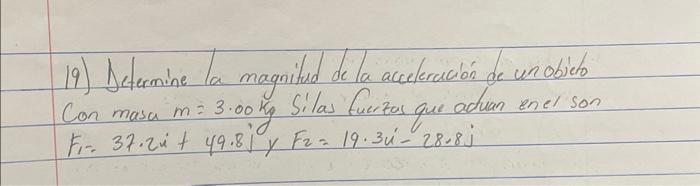 19) Determine la magnitud de la aceleración de un objeto
Con masa m = 3.00 kg Si las fuerzas que actuan en el son
F1 = 37.2i + 49.8j y F2 = 19.3i - 28.8j